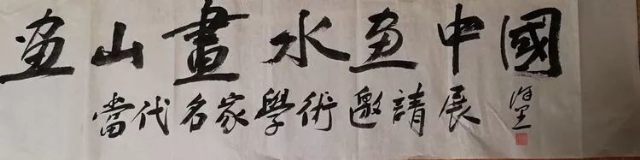 画山畫水画中國
當代名家學術邀請展